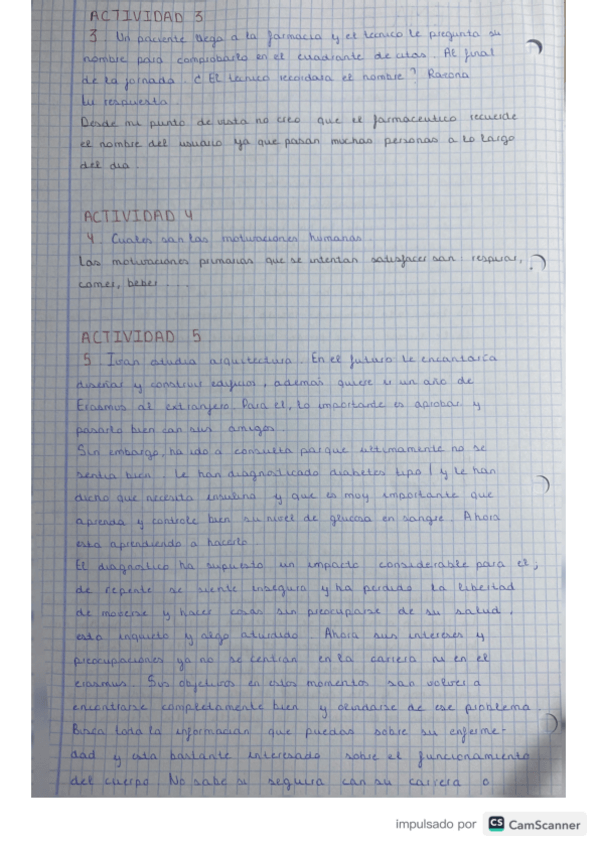 ACTIVIDAD 3
3. Un paciente llega a la farmacia y el tecnico le pregunta su
nombre para comprobarlo en el cuadrante de citas. Al final
de la jornada. ¿ El tecnico recordara el nombre? Razona
tu respuesta
Desde mi punto de vista no creo que el farmaceutico recuerde
el nombre del usuario ya que pasan muchas personas a lo largo
del dia.
ACTIVIDAD 4
4. Cuales son las motivaciones humanas
Las motivaciones primarias que se intentan satisfacer son respirar,
comer, beber....
ACTIVIDAD 5
5 Ivan estudia arquitectura. En el futuro le encantaria
diseñar y construir edificios, ademas quiere ir un año de
Erasmus al extranjero. Para el, lo importante es aprobar y
pasarlo bien con sus amigos.
Sin embargo, ha ido a consulta porque ultimamente no se
sentia bien. Le han diagnosticado diabetes tipo 1 y le han
dicho que necesita insulina y que es muy importante que
aprenda y controle bien su nivel de glucosa en sangre. Ahora
esta aprendiendo a hacerlo.
El diagnostico ha supuesto un impacto considerable para el,
de repente se siente inseguro y ha perdido la libertad
de moverse y hacer cosas sin preocuparse de su salud,
esta inquieto y algo aturdido. Ahora sus intereses y
preocupaciones ya no se centran en la carrera ni en el
erasmus. Sus objetivos en estos momentos son volver a
encontrarse completamente bien y olvidarse de ese problema.
Busca toda la informacion que puedas sobre su enferme-
dad y esta bastante interesado sobre el funcionamiento
del cuerpo. No sabe si seguira con su carrera o
impulsado por CS CamScanner